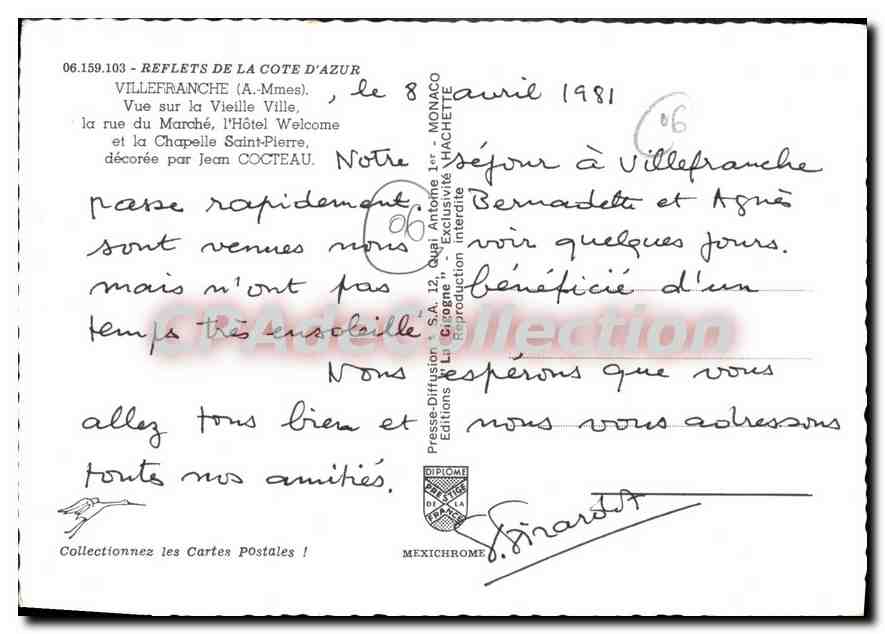 06.159.103 - REFLETS DE LA COTE D'AZUR
VILLEFRANCHE (A.-Mmes).
Vue sur la Vieille Ville,
la rue du Marché, l'Hôtel Welcome
et la Chapelle Saint-Pierre,
décorée par Jean COCTEAU.
, le 8 avril 1981
06
Notre séjour à Villefranche
passe rapidement. Bernadette et Agnès
06
sont venues nous voir quelques jours.
mais n'ont pas bénéficié d'un
temps très ensoleillé
Nous espérons que vous
allez tous bien et nous vous adressons
toutes nos amitiés.
Girardot
Presse-Diffusion " S.A. 12, Quai Antoine 1er - MONACO
Editions "La Cigogne" - Exclusivité HACHETTE
Reproduction interdite
CPAdeCollection
DIPLOME
PRESTIGE
DE LA
FRANCE
MEXICHROME
Collectionnez les Cartes Postales !